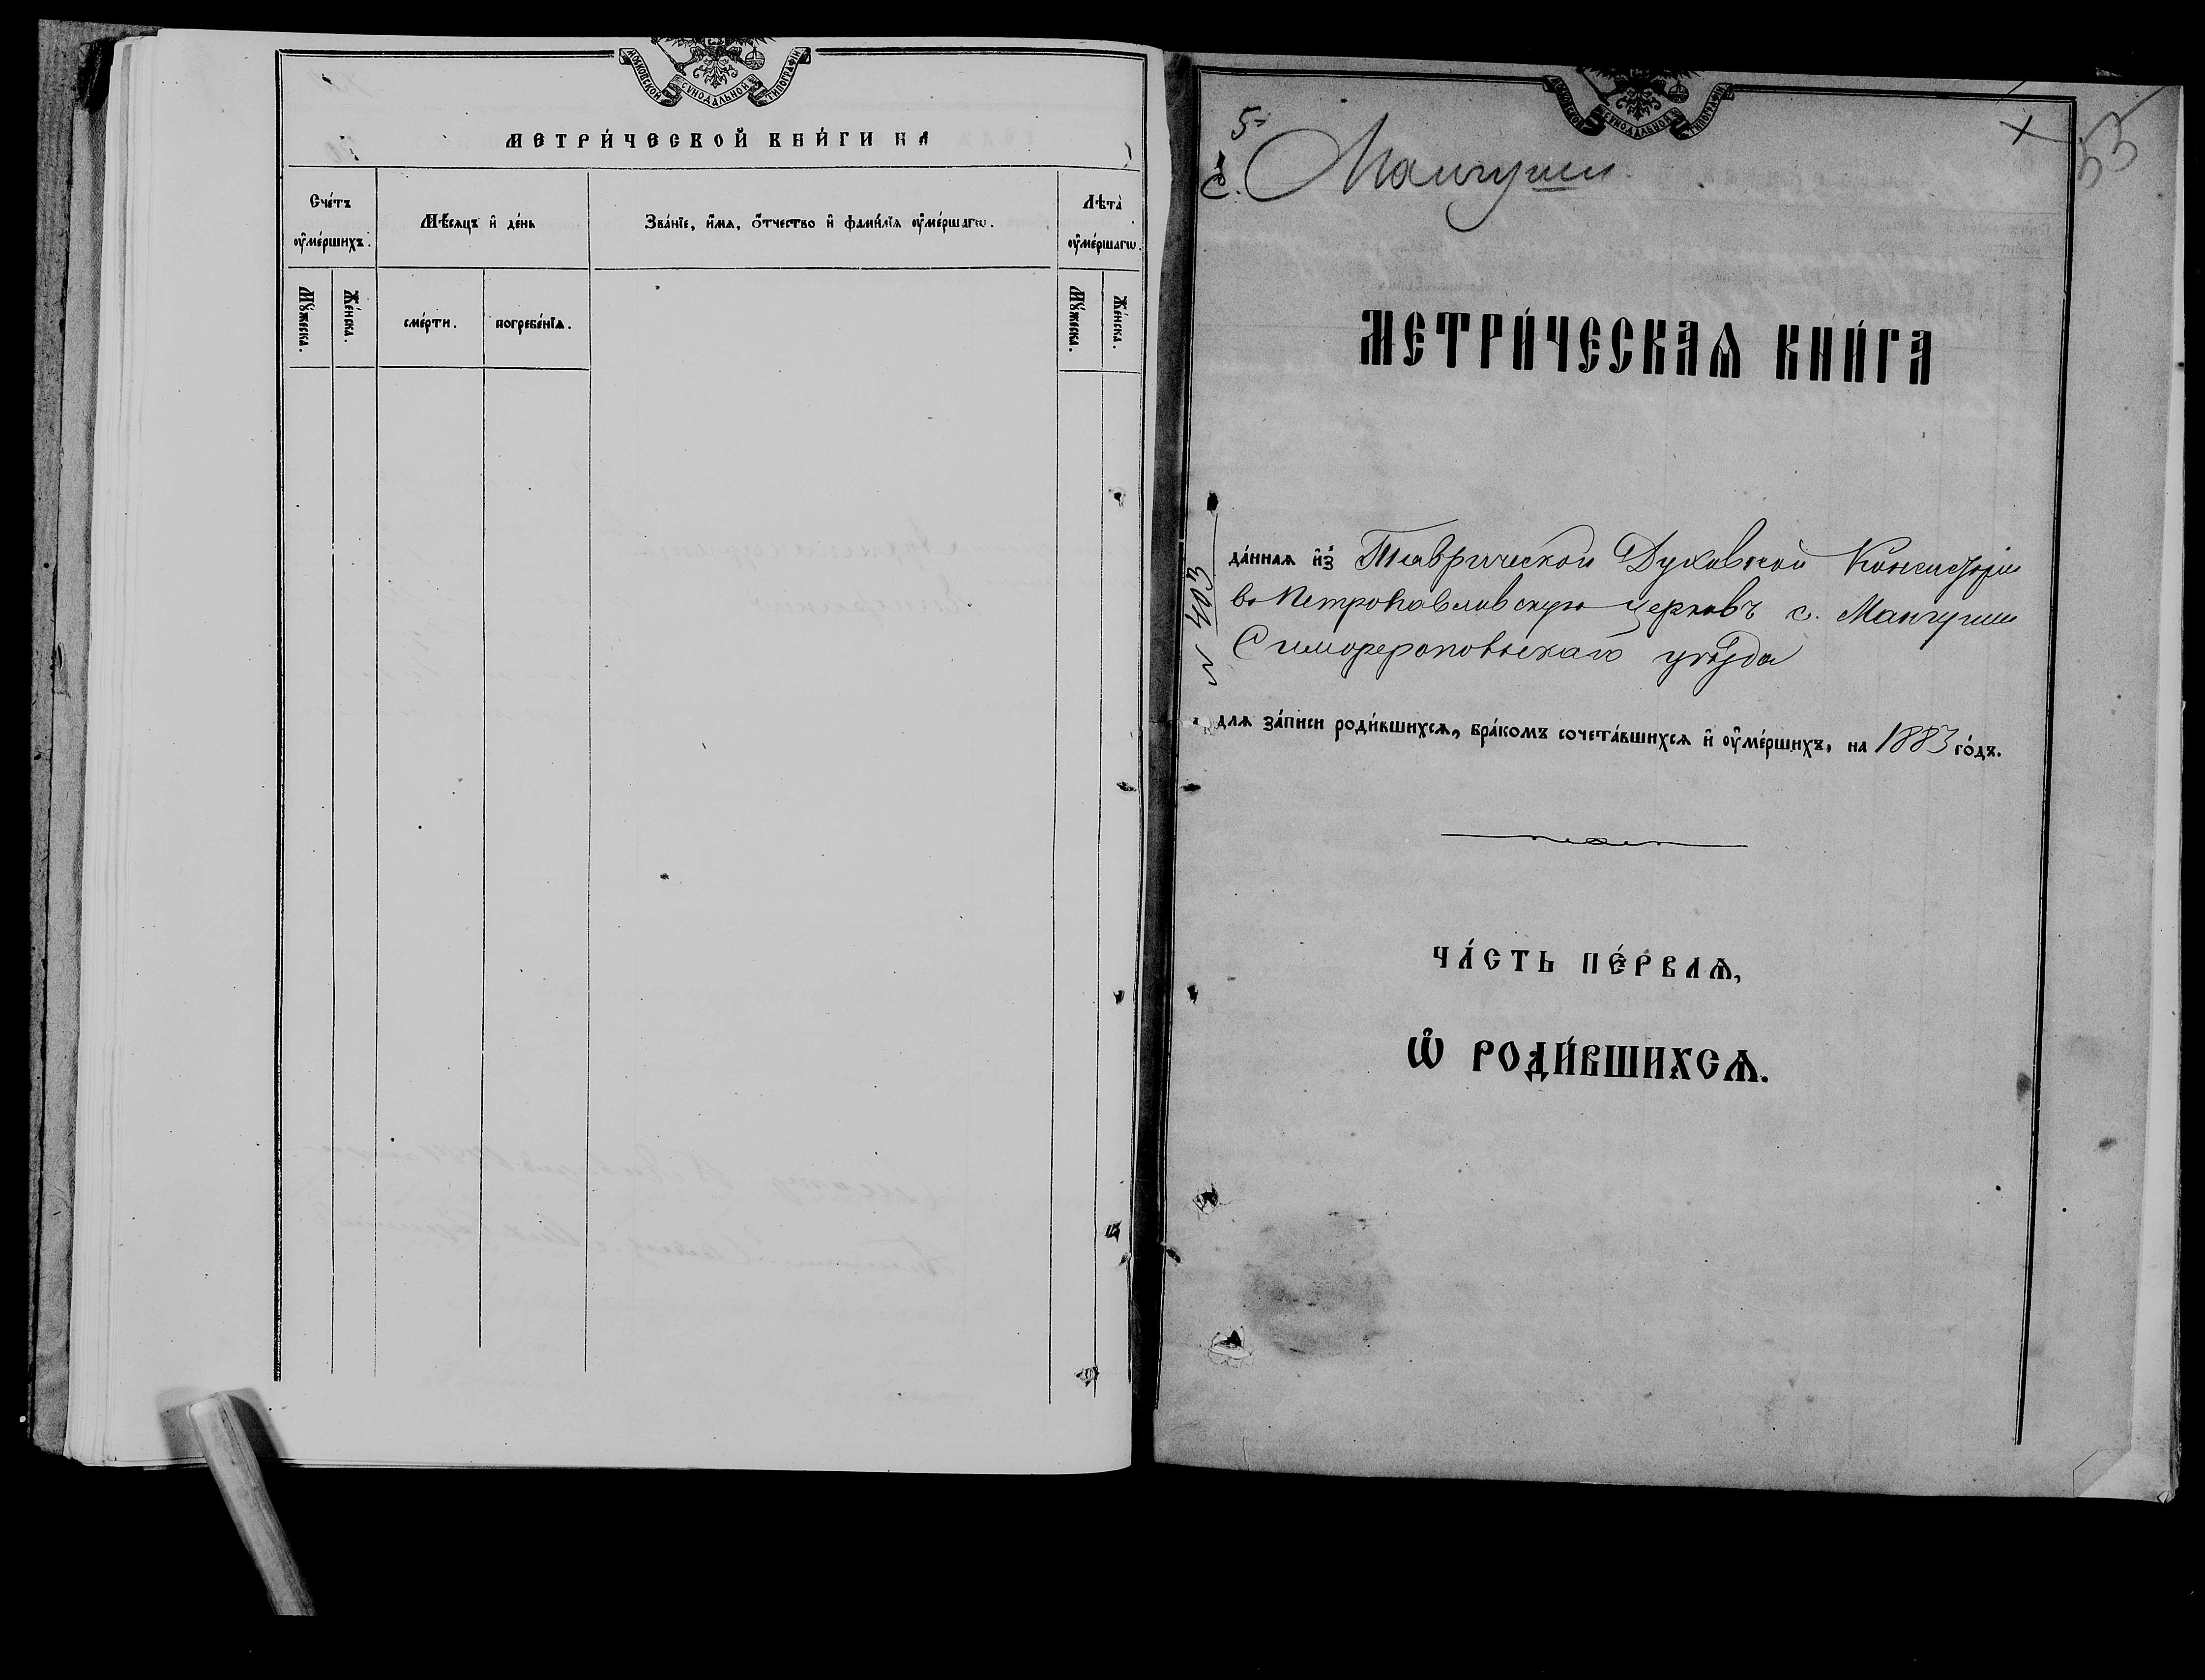 МОСКОВСКОЙ СѴНОДАЛЬНОЙ ТИПОГРАФІИ
МЕТРИ́ЧЕСКОЙ КНИ́ГИ НА
Сче́тъ ᲂу҆ме́ршихъ.
Мѣ́сяцъ и҆ де́нь
Зва́нїе, и҆́мѧ, ѻ҆́тчество и҆ фами́лїѧ ᲂу҆ме́ршагѡ.
Лѣ́та ᲂу҆ме́ршагѡ.
Мꙋ́жеска.
Же́нска.
сме́рти.
погребе́нїѧ.
Мꙋ́жеска.
Же́нска.
МОСКОВСКОЙ СѴНОДАЛЬНОЙ ТИПОГРАФІИ
55
с. Мангуши
МЕТРИ́ЧЕСКАѦ КНИ́ГА
№ 403
да́ннаѧ и҆з̾ Таврической Духовной Консисторіи
въ Петропавловскую церковь с. Мангуши
Симферопольскаго уѣзда
для за́писи роди́вшихсѧ, бра́комъ сочета́вшихсѧ и҆ ᲂу҆ме́ршихъ, на 1883 го́дъ.
ЧА́СТЬ ПЕ́РВАѦ,
Ѡ҆ РОДИ́ВШИХСѦ.